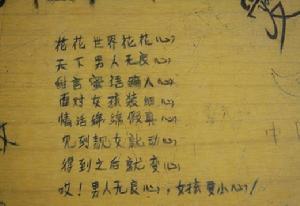 花花世界花花心
天下男人无良心
甜言蜜语骗人心
面对女孩装细心
情话绵绵假真心
见到靓女就动心
得到之后就变心
哎！男人无良心，女孩要小心！